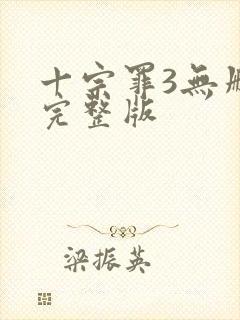 十宗罪3無
完整版
梁振英